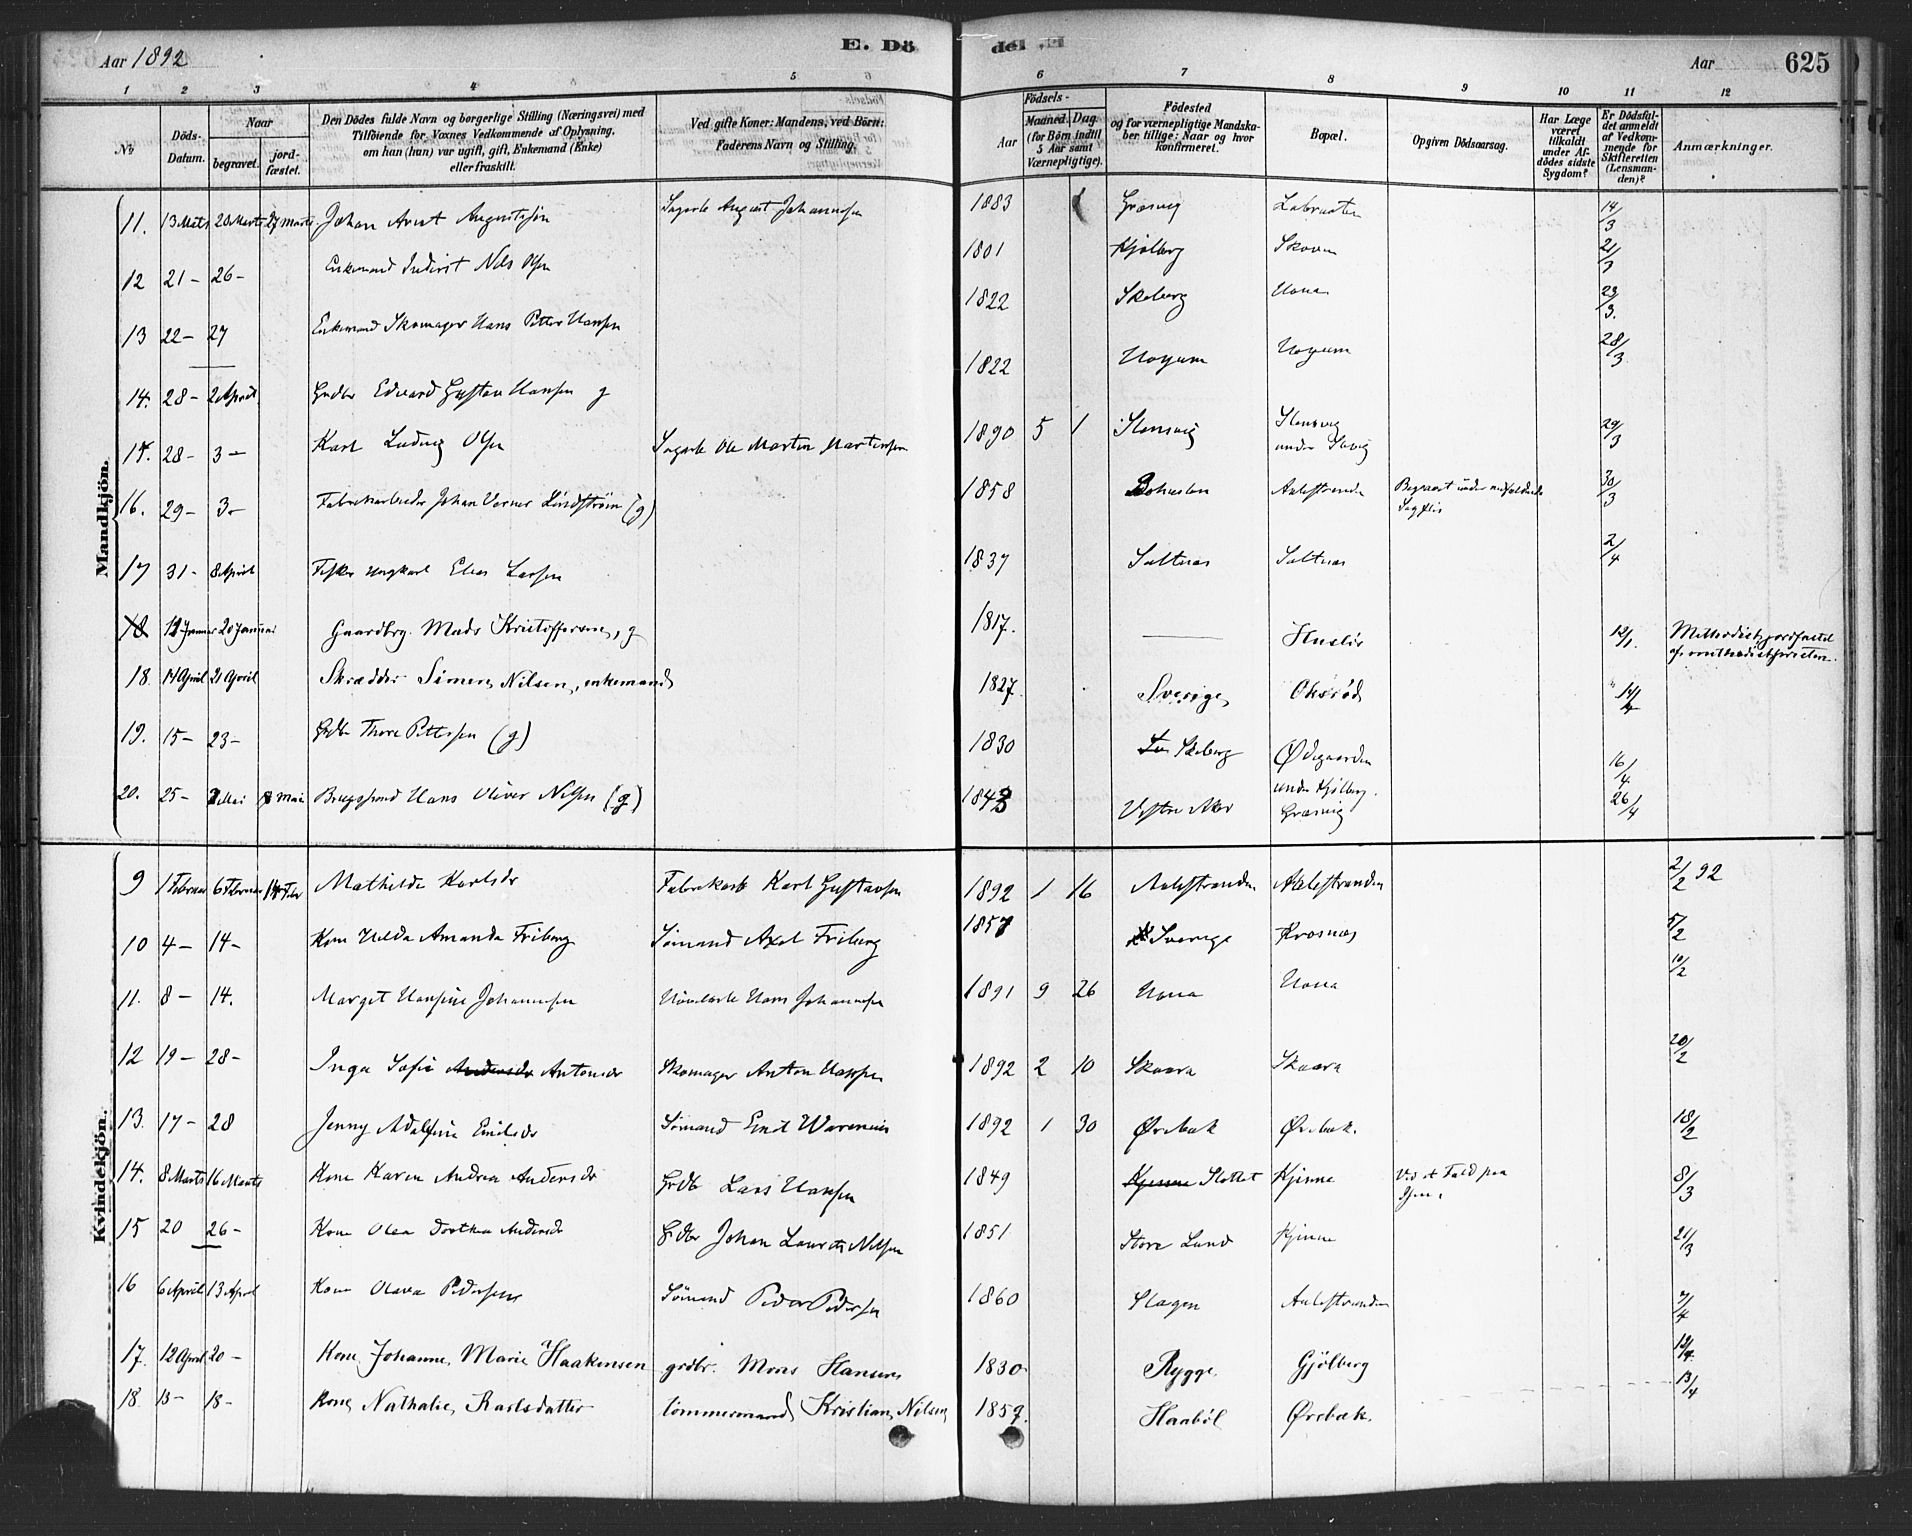 Aar 1892
E. Dö
del. E.
Aar
625
1 2 3 4 5 6 7 8 9 10 11 12
No
Döds-Datum.
Naar
begravet.
jord-fæstet.
Den Dödes fulde Navn og borgerlige Stilling (Næringsvei) med
Tilföiende for Voxnes Vedkommende af Oplysning,
om han (hun) var ugift, gift, Enkemand (Enke)
eller fraskilt.
Ved gifte Koner: Mandens, ved Börn:
Faderens Navn og Stilling.
Födsels-
Aar
Maaned. Dag
(for Börn indtil
5 Aar samt
Værnepligtige).
Födested
og for værnepligtige Mandska-
ber tillige: Naar og hvor
konfirmeret.
Bopæl.
Opgiven Dödsaarsag.
Har Læge
været
tilkaldt
under Af-
dödes sidste
Sygdom?
Er Dödsfal-
det anmeldt
af Vedkom-
mende for
Skifteretten
(Lensman-
den)?
Anmærkninger.
Mandkjön.
11. 13 Marts 20 Marts 27 Marts Johan Arnt Augustsen Sagarb August Johannesen 1883 Græsvig 14/3
12 21 – 26 – Enkemand Inderst Nils Olsen 1801 Kjølberg Skoven 21/3
13 22 – 27 Enkemand Skomager Hans Petter Hansen 1822 Skeberg Hona 23/3.
14. 28 – 2 April. Grdbr Edvard Gustav Hansen g 1822 Hoyum Hoyum 28/3
15. 28 – 3 – Karl Ludvig Olsen Sagarb Ole Martin Martinsen 1890 5 1 Slensvig Slensvig under 29/3
16. 29 – 3 – Fabrikarbeider Johan Verner Lindstrøm (g) 1858 Bohuslen Aalestranden Begravet under Sagflis 30/3
17 31 – 8 April Fisker ungkarl Elias Larsen 1837 Saltnæs Saltnæs 2/4
18 12 Januar 20 Januar Gaardbrg. Mads Kristoffersen, g 1817. — Huslös 12/1. Methodist, jordfæstet af methodistpresten.
18. 14 April 21 April Skrædder Simen Nilsen, enkemand 1827. Sverige Oksrød 14/4
19. 15 – 23 – Grdbr Thore Pettersen (g) 1830 Skeberg Ødegaarden under Kjølberg. 16/4
20. 25 – 2 Mai 8 Mai Brugsmand Hans Oliver Nilsen (g) 1843 Vestre Aker Græsvig 26/4
Kvindekjön.
9 1 Februar 6 Februar 14 Febr Mathilde Karlsdr Fabrikarb Karl Gustavsen 1892 1 16 Aalestranden Aalestranden 2/2 92
10 4 – 14 – Kone Hilda Amanda Friberg Sømand Axel Friberg 1857 Sverige Krosnæs 5/2
11. 8 – 14. Margit Hansine Johannesen Hans Johannesen 1891 9 26 Hona Hona 10/2
12 19 – 28 – Inga Sofie Andersdr Antonsdr Skomager Anton Hansen 1892 2 10 Skaara Skaara 20/2
13. 17 – 28 Jenny Adolfine Emilsdr Sømand Emil Warenius 1892 1 30 Ørebæk Ørebæk. 18/2
14. 8 Marts 16 Marts Kone Karen Andrea Andersdr Grdbr Lars Hansen 1849 Kjenne Slottet Kjenne Ved et Fald paa Isen. 8/3
15 20 26 – Kone Olea Dorthea Andersdr Grdbr Johan Laurits Nilsen 1851 Store Lund Kjenne 21/3
16 6 April 13 April Kone Olava Pedersen Sømand Peder Pedersen 1860 Slagen Aalestranden 7/4
17. 12 April 20 – Kone Johanne Marie Haakensen grdbr. Mons Hansen 1830 Rygge. Gjölberg 12/4.
18. 13 – 18 – Kone Nathalie Karlsdatter tömmermand Kristian Nilsen 1857. Haabøl Örebæk. 13/4